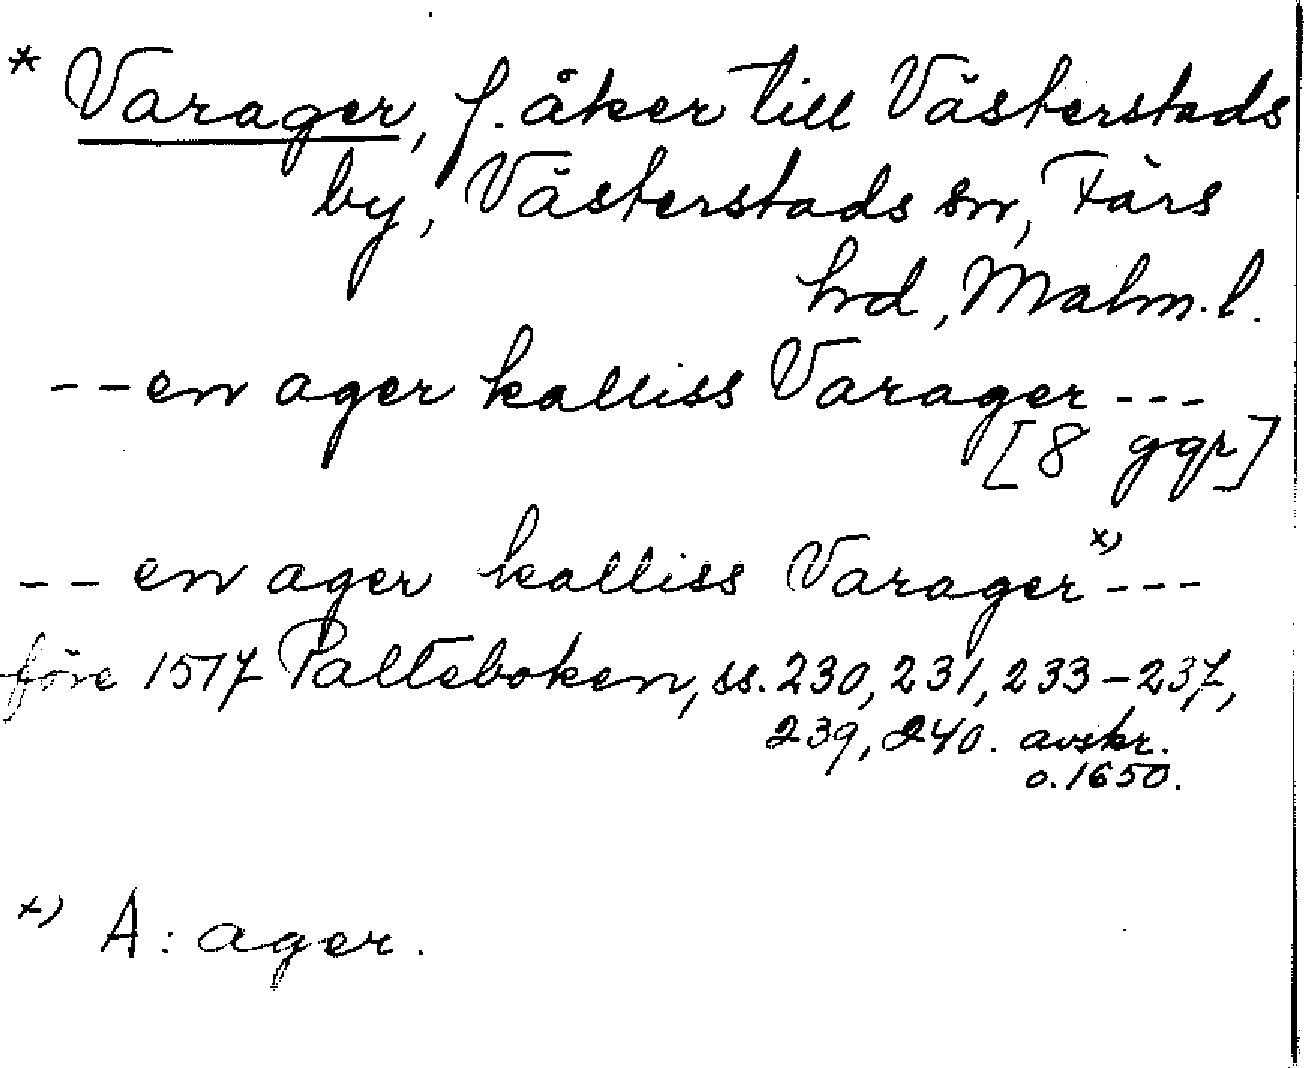 * Varager, f. åker till Västerstads
by, Västerstads sn, Färs
hrd, Malm. l.
-- en ager kalliss Varager ---
[8 ggr]
-- en ager kalliss Varager x) ---
före 1517 Palteboken, ss. 230, 231, 233-237,
239, 240. avskr.
o. 1650.
x) A: ager.